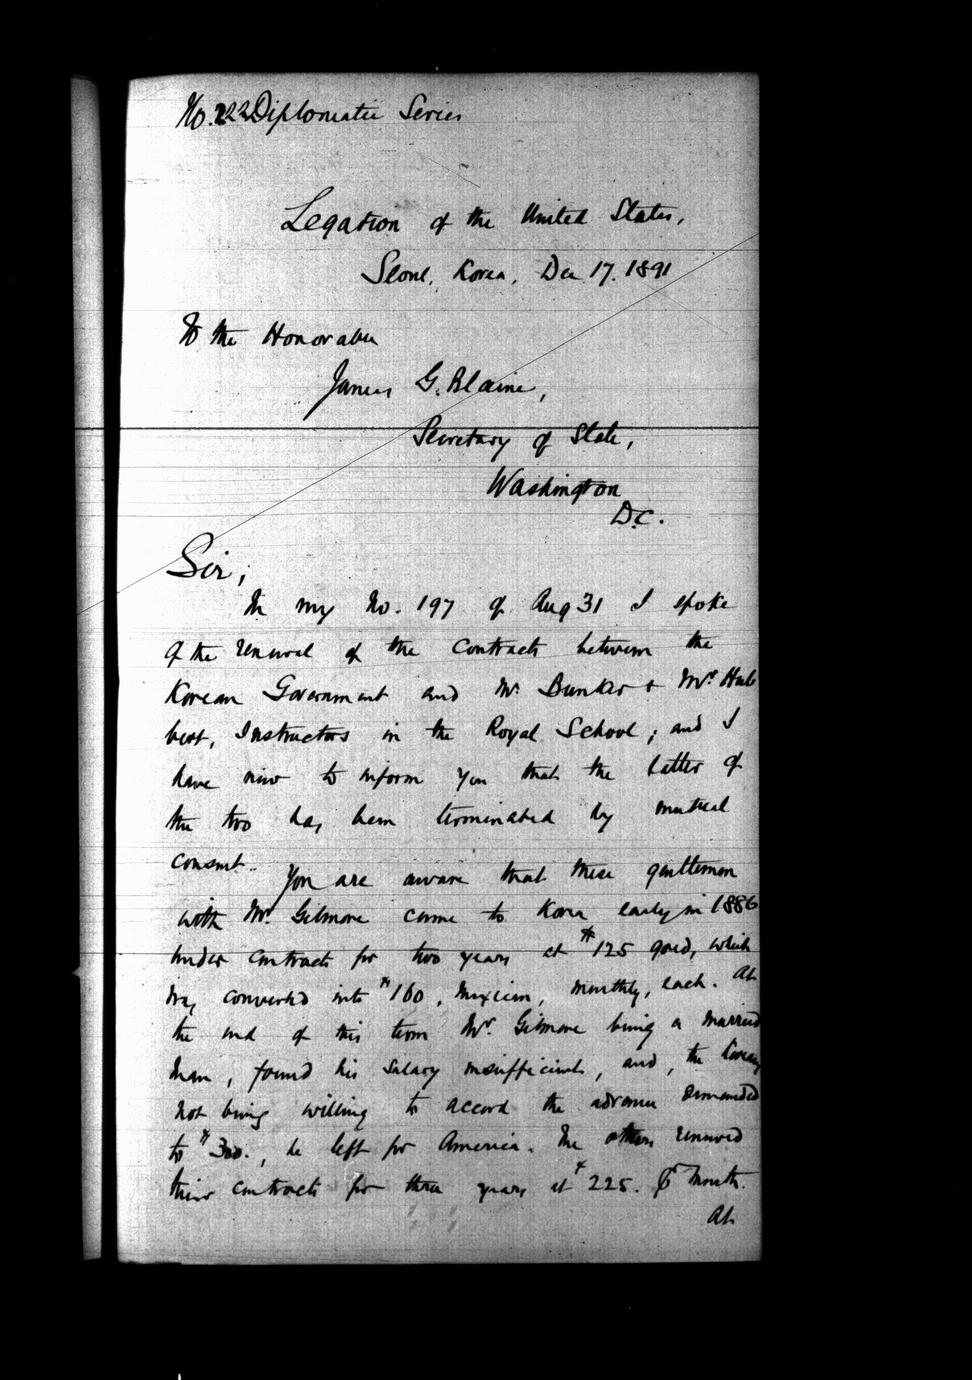 No. 222 Diplomatic Series
Legation of the United States,
Seoul, Korea, Dec 17. 1891
To the Honorable
James G. Blaine,
Secretary of State,
Washington
D.C.
Sir,
In my No. 197 of Aug 31 I spoke
of the renewal of the contracts between the
Korean Government and Mr. Bunker & Mr. Hul-
bert, Instructors in the Royal School; and I
have now to inform you that the latter of
the two has been terminated by mutual
consent.
You are aware that these gentlemen
with Mr. Gilmore came to Korea early in 1886
under contracts for two years at $125 gold, which
was converted into $160, Mexican, monthly, each. At
the end of this term Mr. Gilmore being a married
man, found his salary insufficient, and, the Koreans
not being willing to accord the advance demanded
to $300., he left for America. The others renewed
their contracts for three years at $225. ₱ month.
At